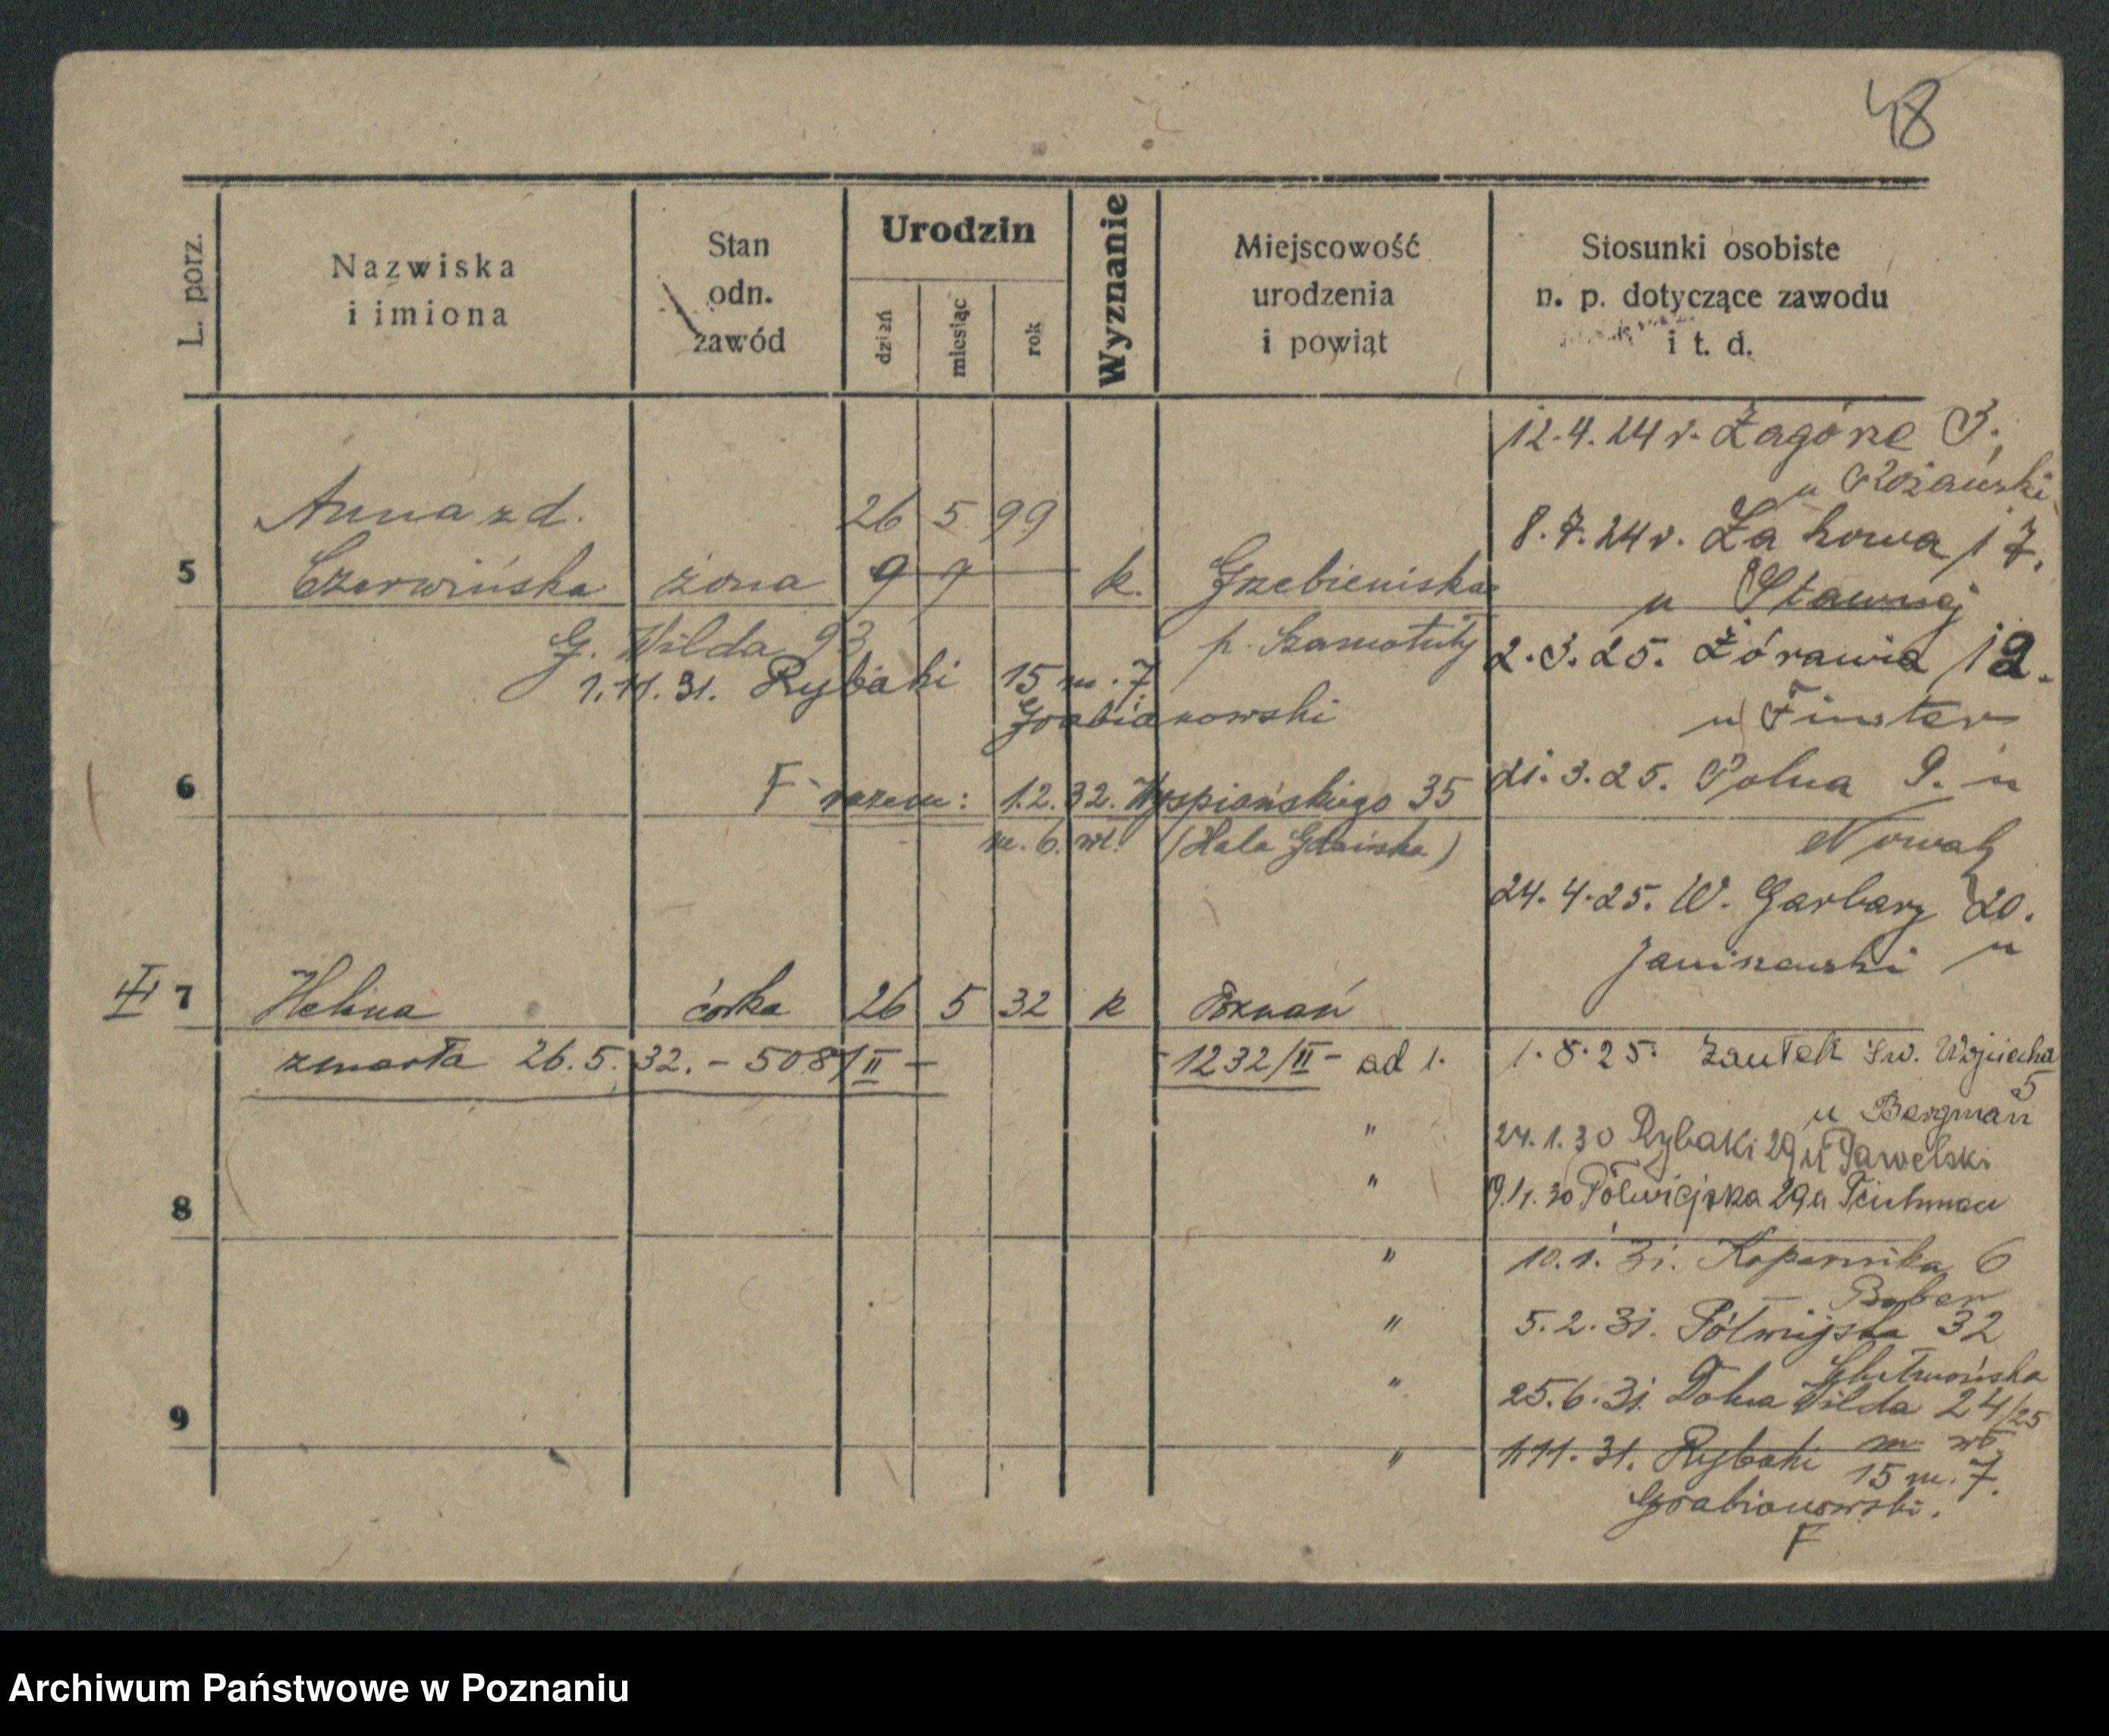 48
L. porz.
Nazwiska
i imiona
Stan
odn.
zawód
Urodzin
dzień
miesiąc
rok
Wyznanie
Miejscowość
urodzenia
i powiąt
Stosunki osobiste
n. p. dotyczące zawodu
i t. d.
12.4.24 r. Zagórze 3,
u Różański
8.7.24 r. 17,
u Stawnej
2.3.25. Żórawia 12.
u Finster
21.3.25. Polna 9. u
Nowak
24.4.25. W. Garbary 20.
Janiszewski u
Anna z d. 26 5 99
5 Czerwińska żona 9 9 k. Grzebienisko
G. Wilda 93 p. Szamotuły
1.11.31. Rybaki 15 m. 7
Grabianowski
6 F razem: 1.2.32. Wyspiańskiego 35
m. 6. wł. (Hala Gdańska)
III 7 Helena córka 26 5 32 k Poznań
zmarła 26.5.32. – 5081/II – – 1232/II – ad 1. 1.8.25. Zaułek Św. Wojciecha
5
u Bergman
" 24.1.30 Rybaki 29 u Pawelski
" 30 Półwiejska 29 u Teichman
8
" 10.1.31. Kopernika 6
" 5.2.31. Półwiejska 32
" 25.6.31. Dolna Wilda 24/25
m. wł.
9
" 1.11.31. Rybaki 15 m. 7.
Grabianowski.
F
Archiwum Państwowe w Poznaniu